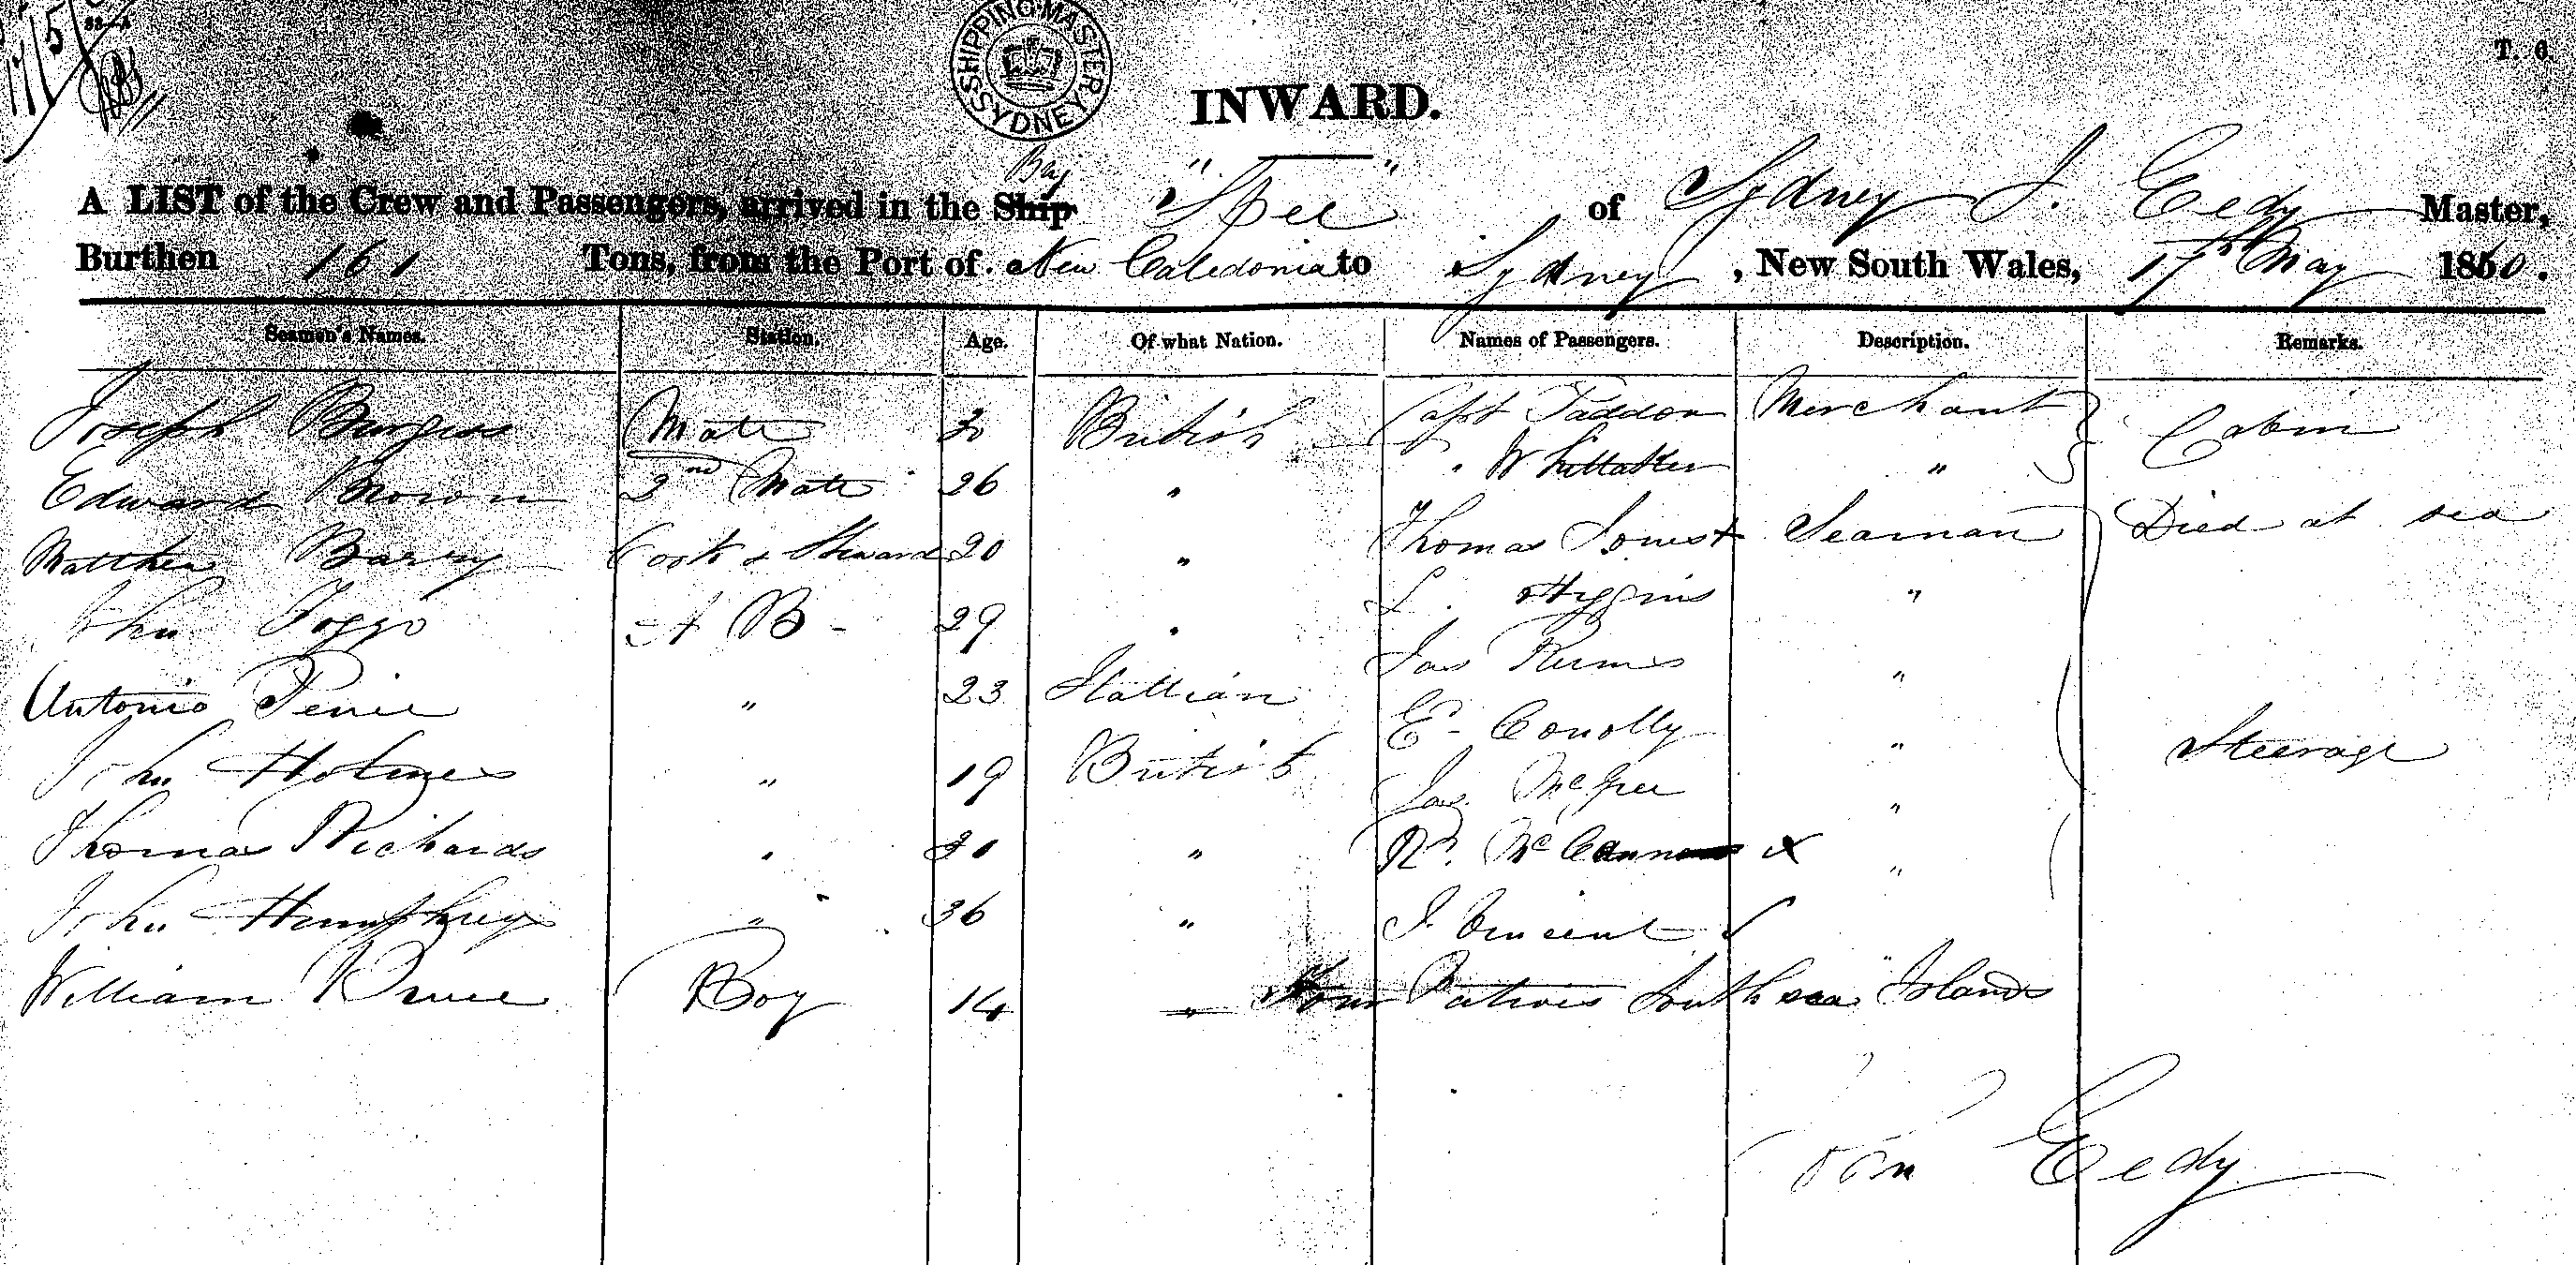 17/5/
SHIPPING MASTER SYDNEY
T. 6.
INWARD.
A LIST of the Crew and Passengers, arrived in the Ship "Spec" of Sydney J. Eedy Master,
Burthen 161 Tons, from the Port of New Caledonia to Sydney, New South Wales, 17th May 1860.
Seamen's Names. Station. Age. Of what Nation. Names of Passengers. Description. Remarks.
Joseph Burgess Mate 30 British Capt Paddon Merchant Cabin
Edward Brown 2nd Mate 26 " " Whittaker "
Matthew Barry Cook & Steward 20 " Thomas Jones + Seaman Died at sea
John A B - 29 " L. Higgins "
Antonio 23 Itallian Jas "
John Holmes " 19 British E. Conolly " Steerage
Thomas Richards " 21 " Jas McGee "
John Humphreys " 36 " Rd. McCann x "
William Bruce Boy 14 " J. Vincent
Four Natives South sea Islands
John Eedy